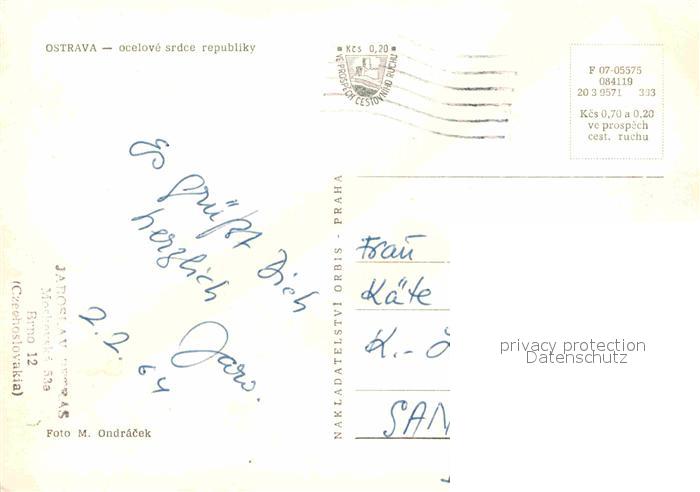 OSTRAVA — ocelové srdce republiky
Kčs 0,20
VE PROSPĚCH CESTOVNÍHO RUCHU
F 07-05575
084119
20 3 9571 333
Kčs 0,70 a 0,20
ve prospěch
cest. ruchu
Es grüßt Dich
herzlich
Jaro.
2.2.64
NAKLADATELSTVÍ ORBIS - PRAHA
Frau
Käte
K.-Ö
SAN
privacy protection
Datenschutz
JAROSLAV
53a
Brno 12
(Czechoslovakia)
Foto M. Ondráček